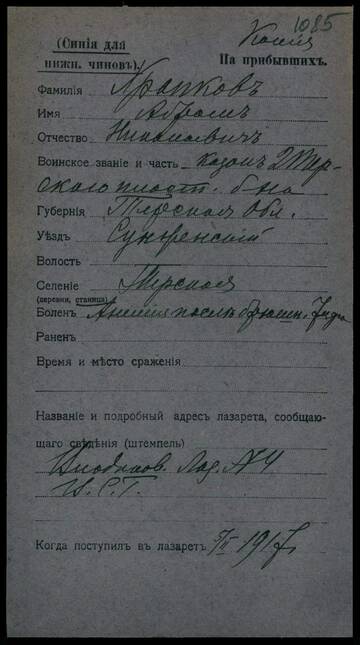 1085
(Синія для нижн. чиновъ).
Копія
На прибывшихъ.
Фамилія Храпковъ
Имя Абрамъ
Отчество Николаевичъ
Воинское званіе и часть казакъ 2 Тер-
скаго пласт. б-на
Губернія Терская Обл.
Уѣздъ Сунженскій
Волость
Селеніе Терская
(деревня, станица)
Боленъ Анемія послѣ брюшн.
Раненъ
Время и мѣсто сраженія
Названіе и подробный адресъ лазарета, сообщаю-
щаго свѣдѣнія (штемпель)
Владиков. Лаз. № 4
В. С. Г.
Когда поступилъ въ лазаретъ 5/II 1917 г.